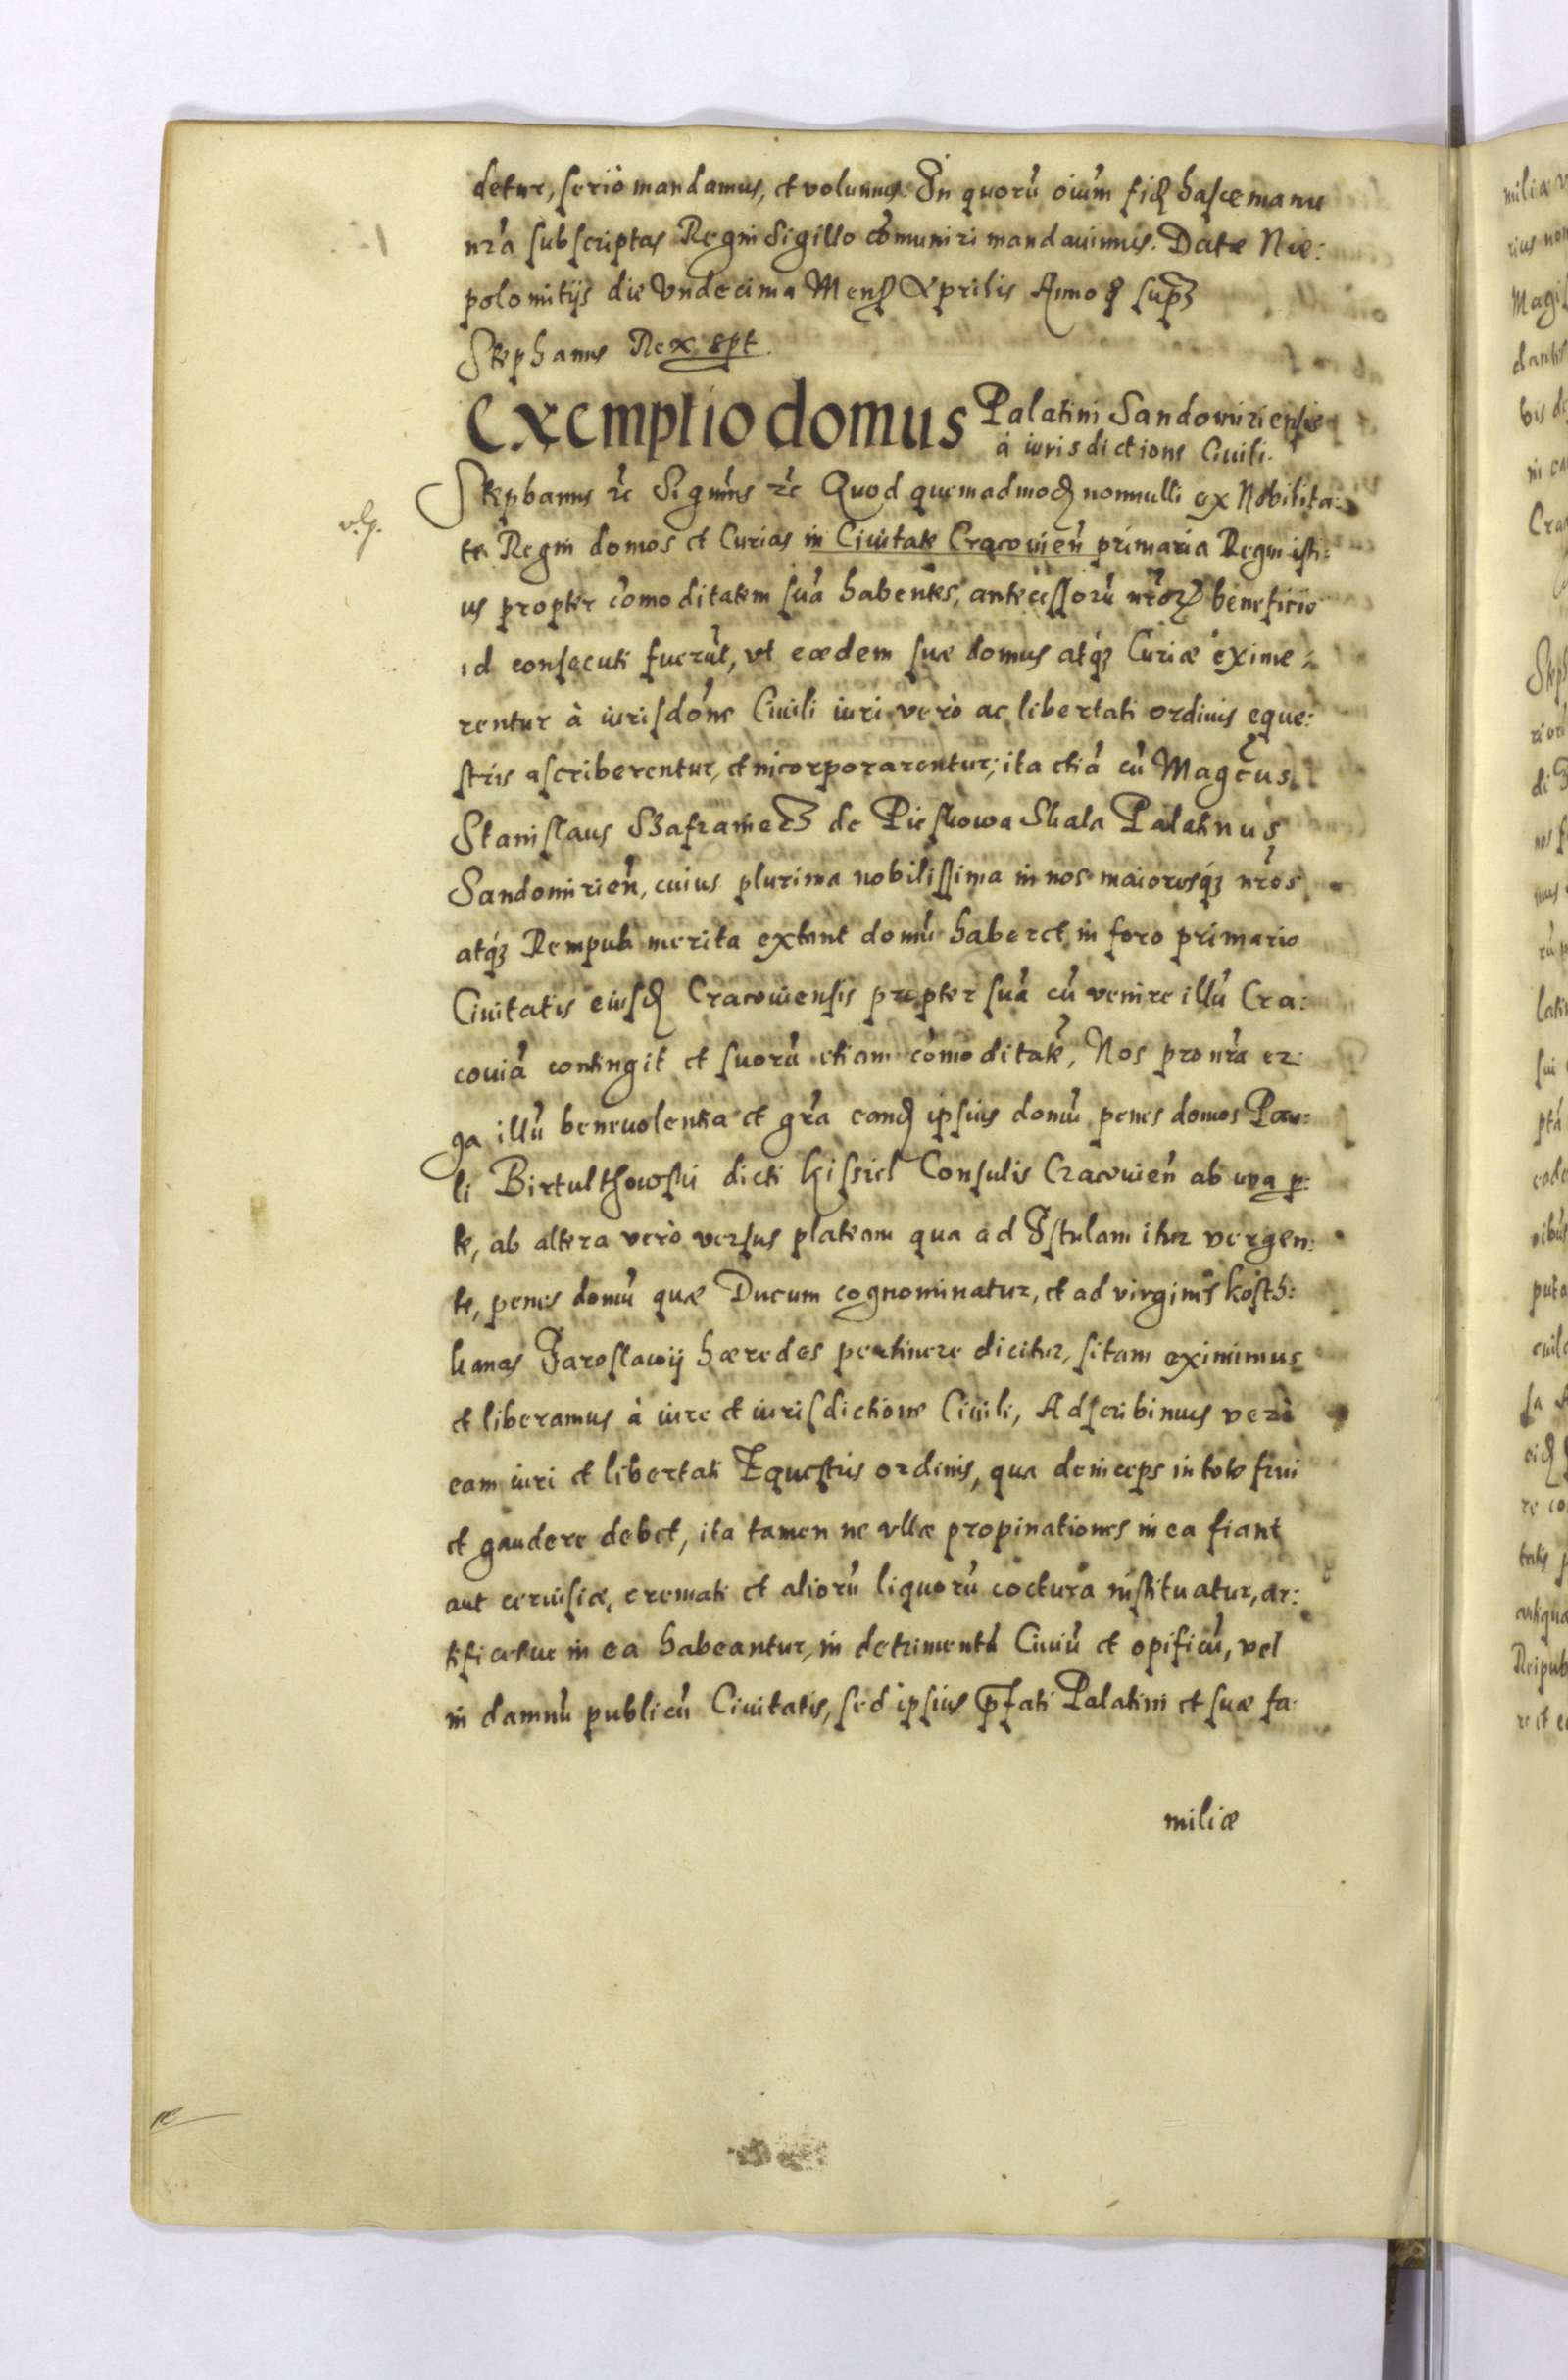 detur, serio mandamus, et volumus. In quorũ oiũm fiđ hasce manu
nr̃a subscriptas Regni Sigillo cõmuniri mandauimus. Datæ Nie:
polomitijs die Vndecima Mens Aprilis Anno q̃ sup̃
Stephanus Rex sp̃t
Exemptio domus Palatini Sandomiriensis
à iurisdictione Ciuili.
Stephanus ꝛc Signm̃s ꝛc Quod quemadmođ nonnulli ex Nobilita:
te Regni domos et Curias in Ciuitate Cracouieñ primaria Regni isti:
us propter cõmoditatem suã habentes, antecessorũ nr̃oꝝ beneficio
id consecuti fuerũt, vt eædem suæ domus atqꝫ Curiæ exime:
rentur à iurisdõne Ciuili iuri verò ac libertati ordinis eque:
stris ascriberentur, et incorporarentur; ita etiã cũ Magc̃us
Stanislaus Szafraniecz de Pieskowa Skala Palatinus
Sandomirieñ, cuius plurima nobilissima in nos maioresqꝫ nr̃os
atqꝫ Rempub merita extant domũ haberet in foro primario
Ciuitatis eiusđ Cracouiensis propter suã cũ venire illũ Cra:
couiã contingit et suorũ etiam cõmoditatẽ, Nos pro nr̃a er:
ga illũ beneuolentia et gr̃a eanđ ipsius domũ penes domos Pau:
li Birtulthowski dicti Kissiel Consulis Cracouieñ ab vna p̱:
te, ab altera verò versus plateam qua ad Istulam itur vergen:
te, penes domũ quæ Ducum cognominatur, et ad virgines Kosth:
kanas Jaroslawij hæredes pertinere dicitur, sitam eximimus
et liberamus à iure et iurisdictione Ciuili, Adscribimus verò
eam iuri et libertati Equestris ordinis, qua deinceps in toto frui
et gaudere debet, ita tamen ne vllæ propinationes in ea fiant
aut ceruisiæ, cremati et aliorũ liquorũ coctura instituatur, ar:
tificesue in ea habeantur, in detrimentũ Ciuiũ et opificũ, vel
in damnũ publicũ Ciuitatis, sed ipsius p̃fati Palatini et suæ fa:
miliæ